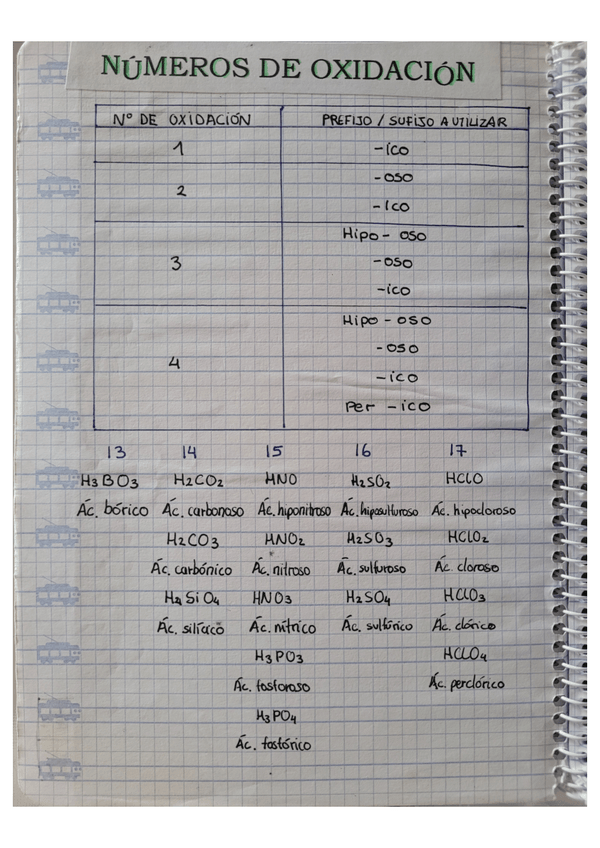 NÚMEROS DE OXIDACIÓN
Nº DE OXIDACIÓN PREFIJO / SUFIJO A UTILIZAR
1 -ico
2 -oso
-ico
3 Hipo - oso
-oso
-ico
4 Hipo - oso
-oso
-ico
Per -ico
13 14 15 16 17
H3BO3 H2CO2 HNO H2SO2 HClO
Ác. bórico Ác. carbonoso Ác. hiponitroso Ác. hiposulfuroso Ác. hipocloroso
H2CO3 HNO2 H2SO3 HClO2
Ác. carbónico Ác. nitroso Ác. sulfuroso Ác. cloroso
H4SiO4 HNO3 H2SO4 HClO3
Ác. silíaco Ác. nítrico Ác. sulfúrico Ác. clórico
H3PO3 HClO4
Ác. fosforoso Ác. perclórico
H3PO4
Ác. fosfórico